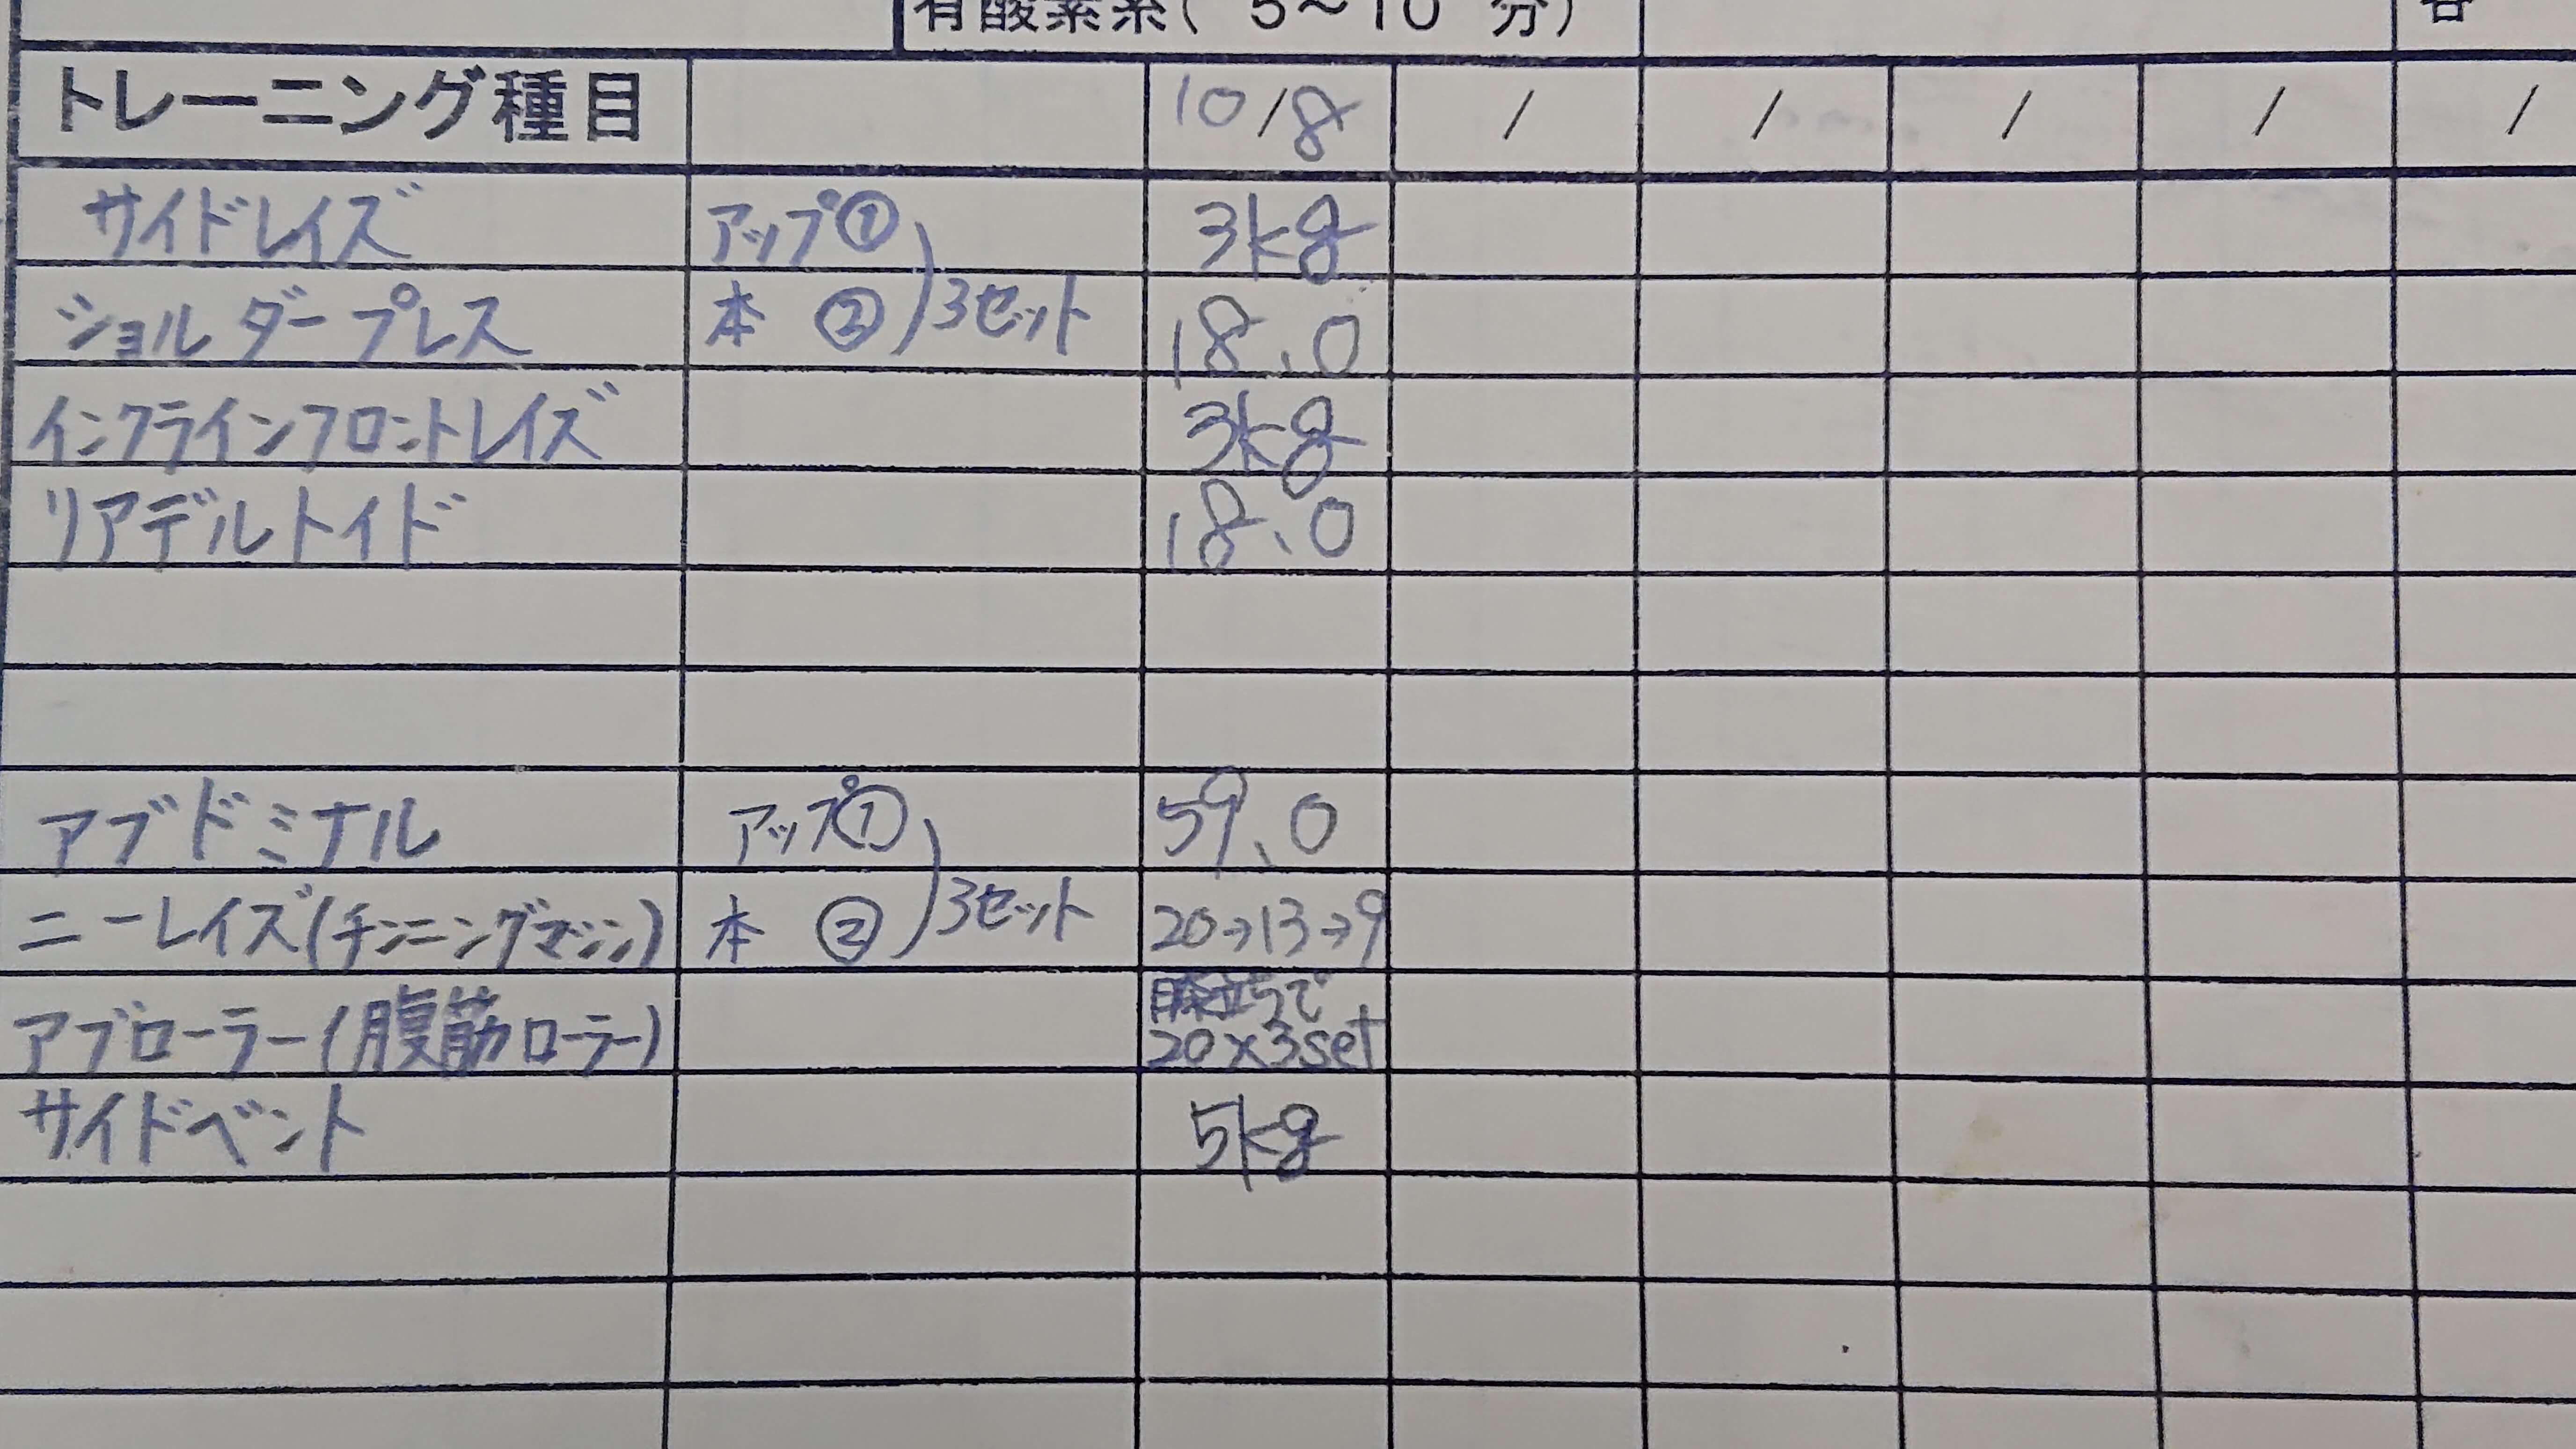 有酸素系( 5～10 分)
トレーニング種目 10/8 / / / / /
サイドレイズ アップ① 3kg
ショルダープレス 本 ② 3セット 18.0
インクラインフロントレイズ 3kg
リアデルトイド 18.0
アブドミナル アップ① 59.0
ニーレイズ(チンニングマシン) 本 ② 3セット 20→13→9
膝立ちで
アブローラー(腹筋ローラー) 20×3set
サイドベント 5kg